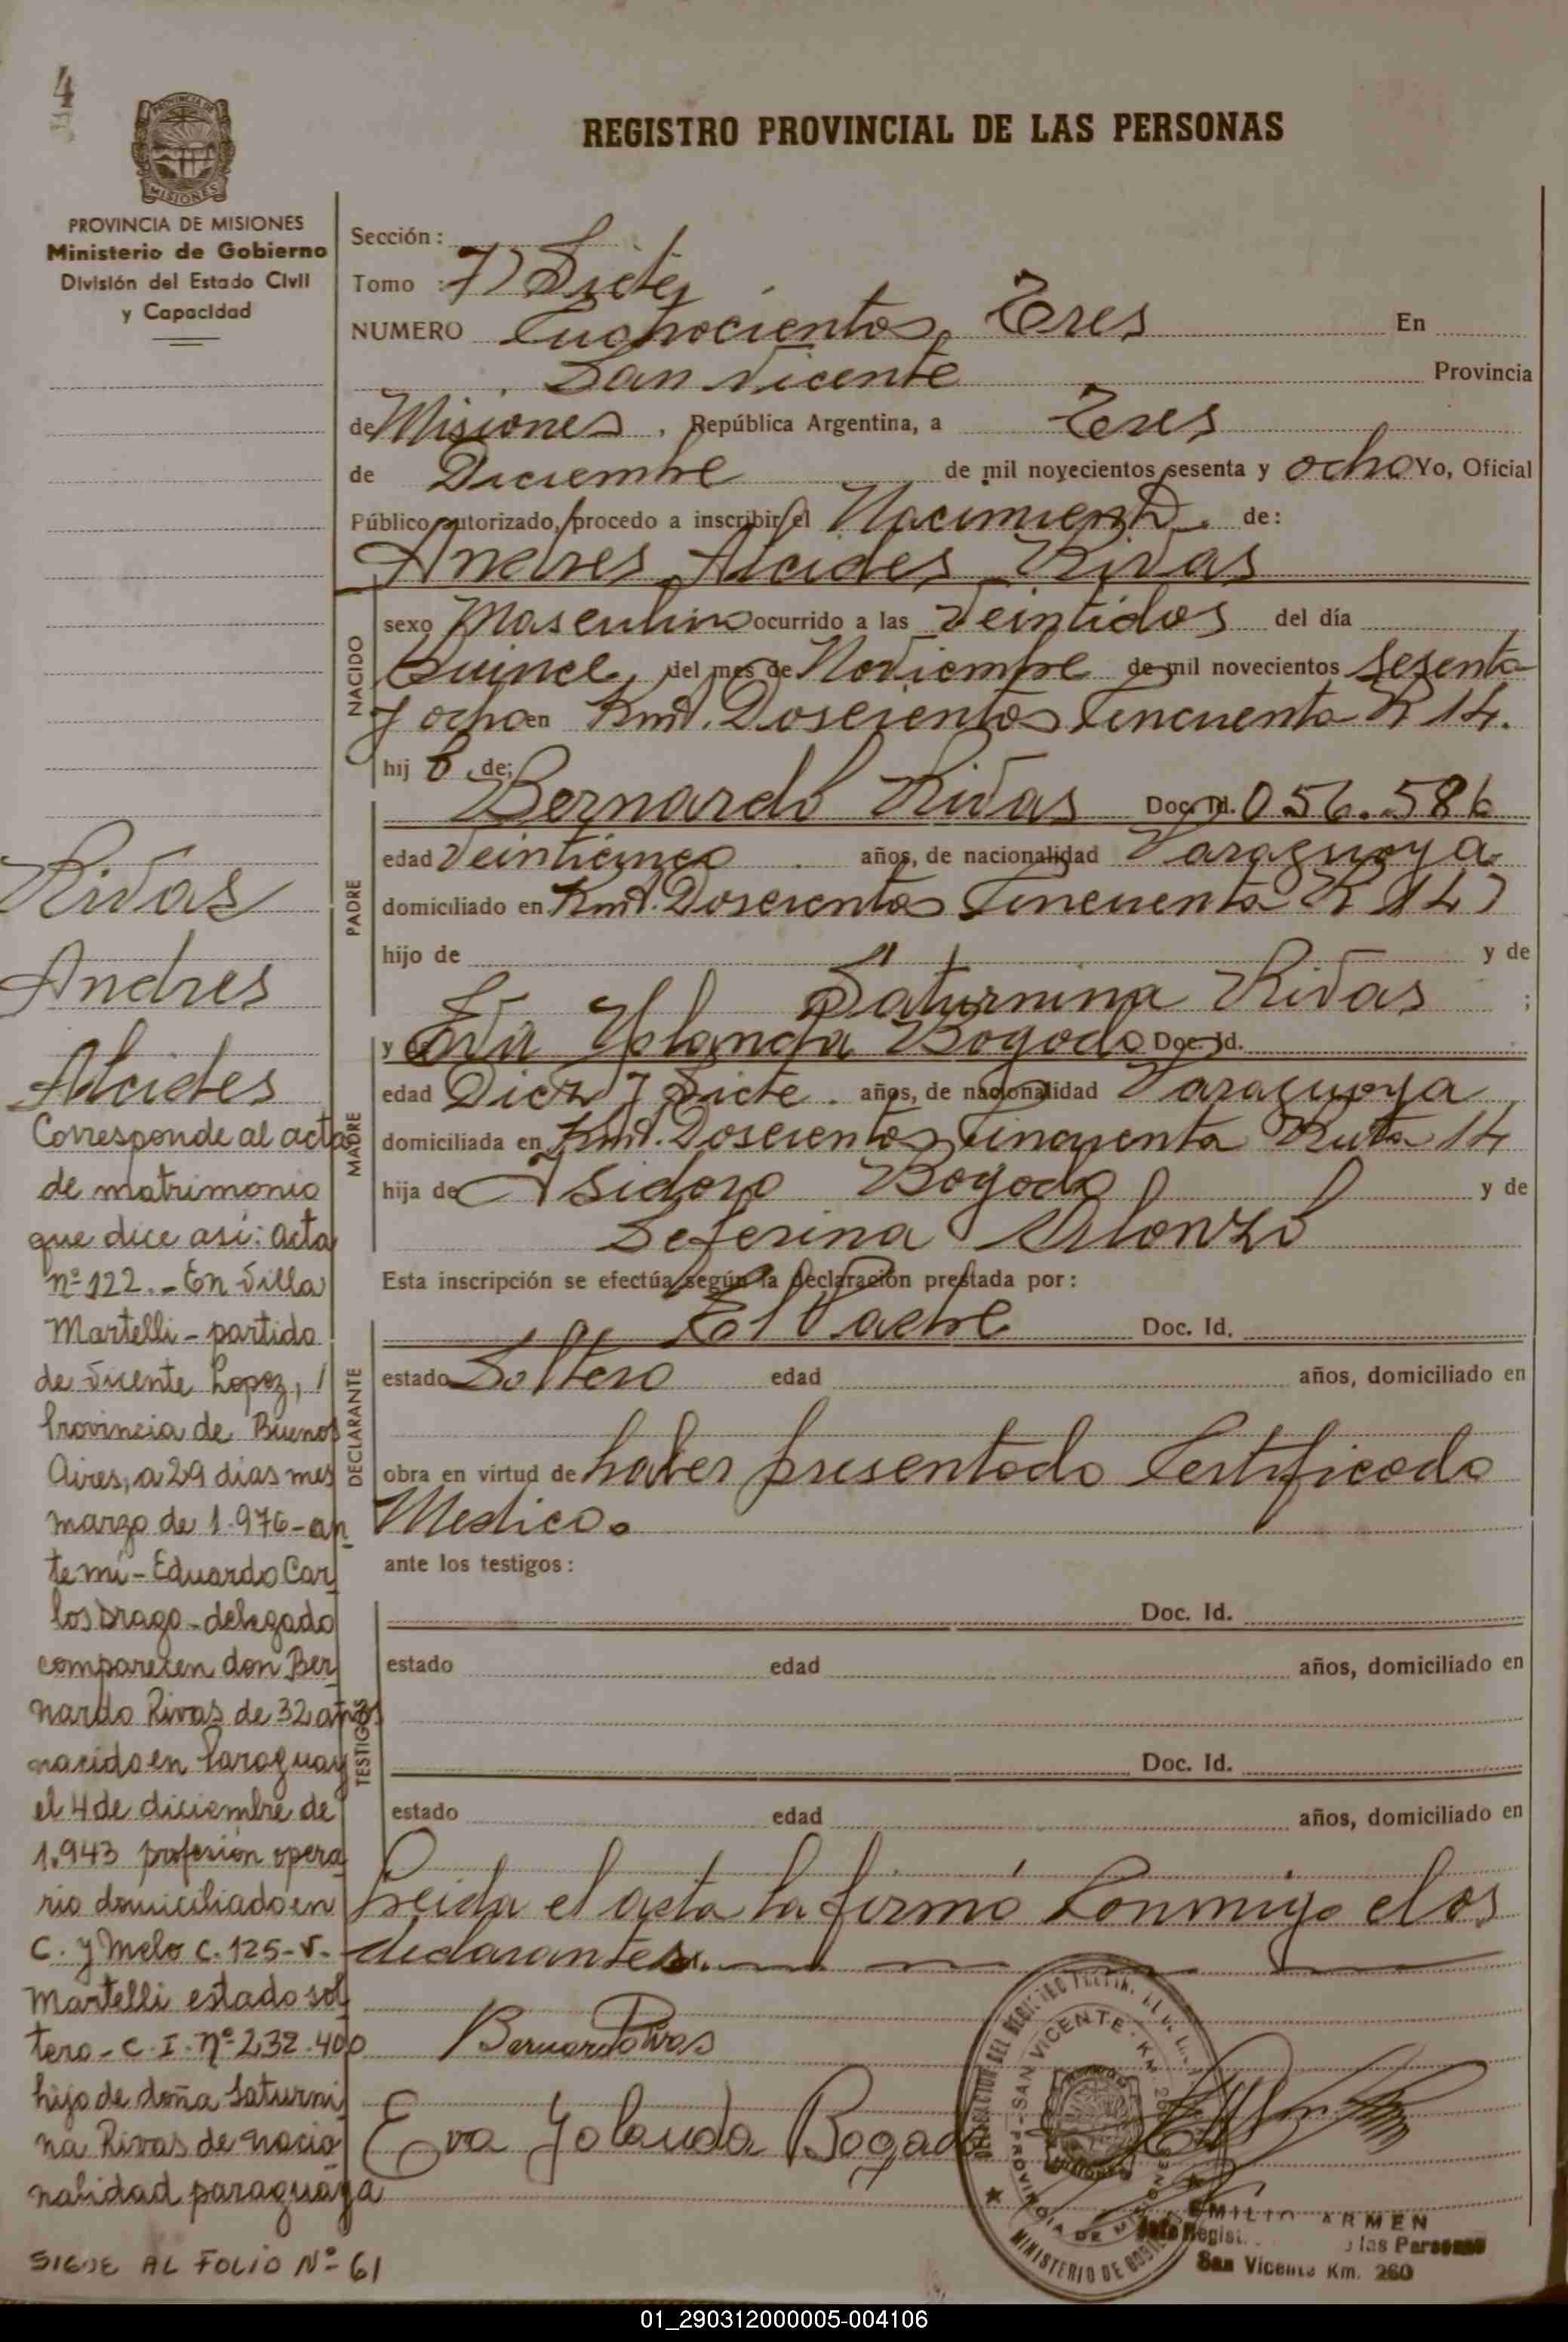 4
REGISTRO PROVINCIAL DE LAS PERSONAS
PROVINCIA DE
MISIONES
PROVINCIA DE MISIONES
Ministerio de Gobierno
División del Estado Civil
y Capacidad
Sección :
Tomo : 7) Siete)
NUMERO Cuchocientos Tres En
San Vicente Provincia
de Misiones, República Argentina, a Tres
de Diciembre de mil novecientos sesenta y ocho Yo, Oficial
Público autorizado, procedo a inscribir el Nacimiento de:
Andres Alcides Rivas
NACIDO
sexo Masculino ocurrido a las Veintidos del día
Quince, del mes de Noviembre de mil novecientos Sesenta
y ocho en Kmt. Doscientos Cincuenta R 14.
hij o de;
PADRE
Bernardo Rivas Doc. Id. 056.586
edad Veinticinco años, de nacionalidad Paraguaya
domiciliado en Kmt. Doscientos Cincuenta R 14)
hijo de y de
Saturnina Rivas ;
MADRE
y Eva Yolanda Bogado Doc. Id.
edad Diez y Siete años, de nacionalidad Paraguaya
domiciliada en Kmt. Doscientos Cincuenta Ruta 14
hija de Isidoro Bogado y de
Seferina Alonzo
Esta inscripción se efectúa según la declaración prestada por :
DECLARANTE
El Padre Doc. Id.
estado Soltero edad años, domiciliado en
obra en virtud de haber presentado Certificado
Medico.
ante los testigos :
TESTIGOS
Doc. Id.
estado edad años, domiciliado en
Doc. Id.
estado edad años, domiciliado en
Leida el acta la firmó Conmigo el os
declarantes.
Bernardo Rivas
Eva Yolanda Bogado
SAN VICENTE - KM.
PROVINCIA DE MISIONES
MINISTERIO DE
EMILIO ARMEN
Jefe Regist. las Personas
San Vicente Km. 260
Rivas
Andres
Alcides
Corresponde al acta
de matrimonio
que dice asi: acta
nº 122.- En Villa
Martelli - partido
de Vicente Lopez, /
Provincia de Buenos
Aires, a 29 dias mes
marzo de 1.976 - an
te mi - Eduardo Car
los Drago - delegado
comparecen don Ber
nardo Rivas de 32 años
nacido en Paraguay
el 4 de diciembre de
1.943 profesión opera
rio domiciliado en
C. y Melo C. 125 - V.-
Martelli estado sol
tero - C. I. Nº 232.400
hijo de doña Saturni
na Rivas de nacio
nalidad paraguaya
SIGUE AL FOLIO Nº 61
01_290312000005-004106